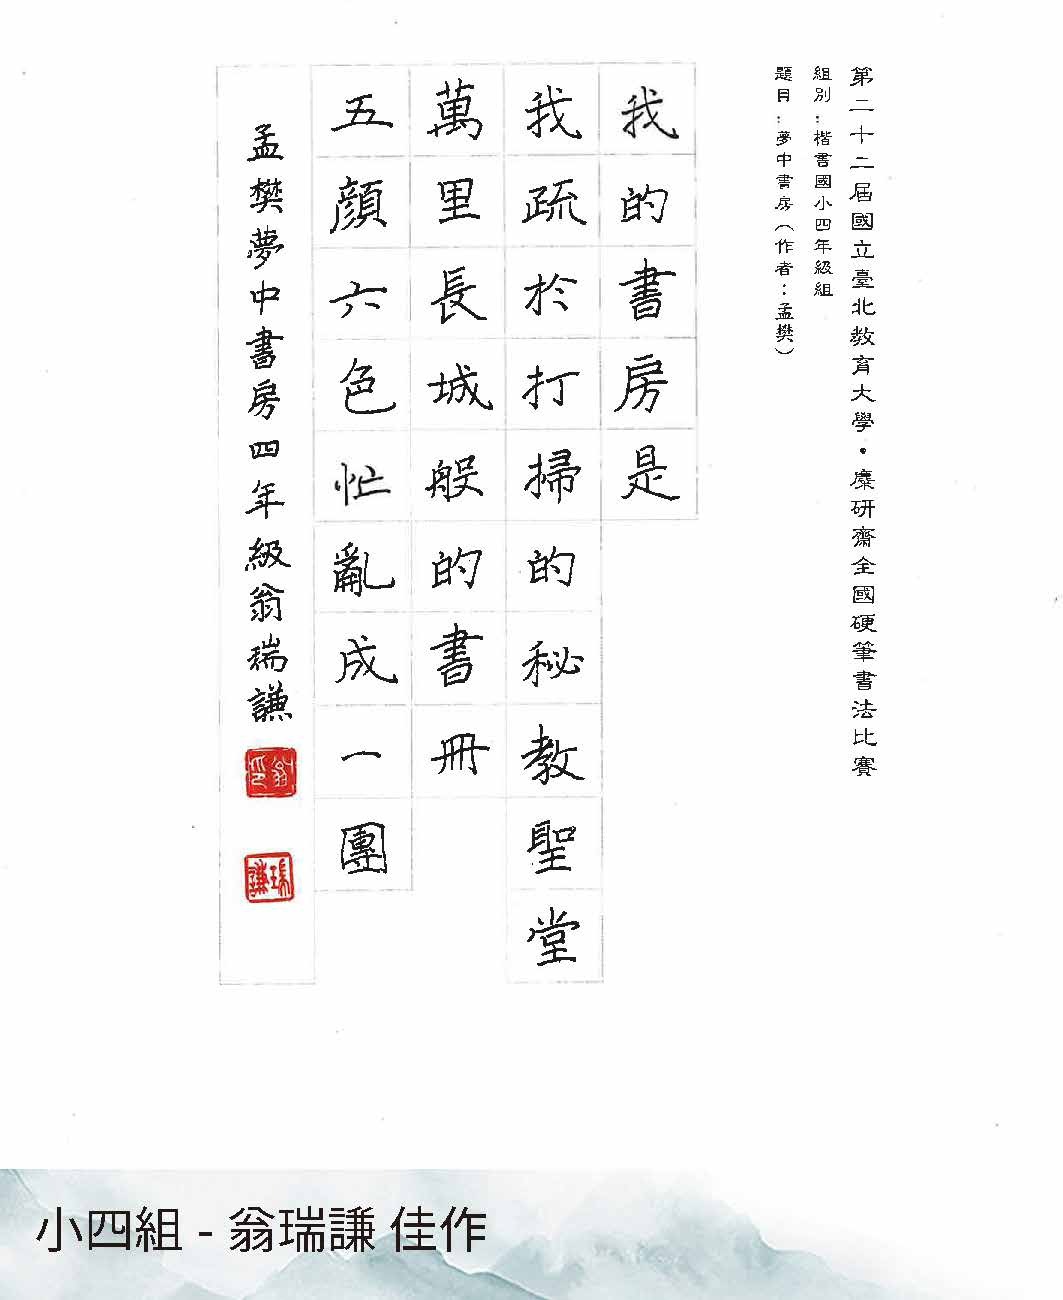 第二十二屆國立臺北教育大學・麋研齋全國硬筆書法比賽
組別：楷書國小四年級組
題目：夢中書房（作者：孟樊）
我的書房是
我疏於打掃的秘教聖堂
萬里長城般的書冊
五顏六色忙亂成一團
孟樊夢中書房四年級翁瑞謙
翁印
瑞謙
小四組 - 翁瑞謙 佳作